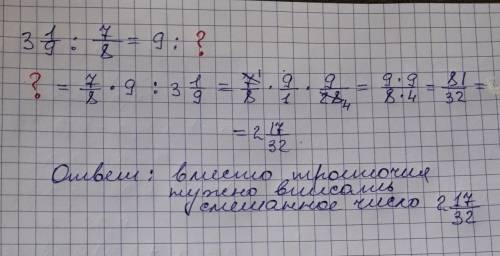 3 1/9 : 7/8 = 9 : ?
? = 7/8 · 9 : 3 1/9 = 7/8 · 9/1 · 9/28 = 9·9/8·4 = 81/32 =
= 2 17/32
Ответ: вместо троиточия
нужно вписать
смешанное число 2 17/32